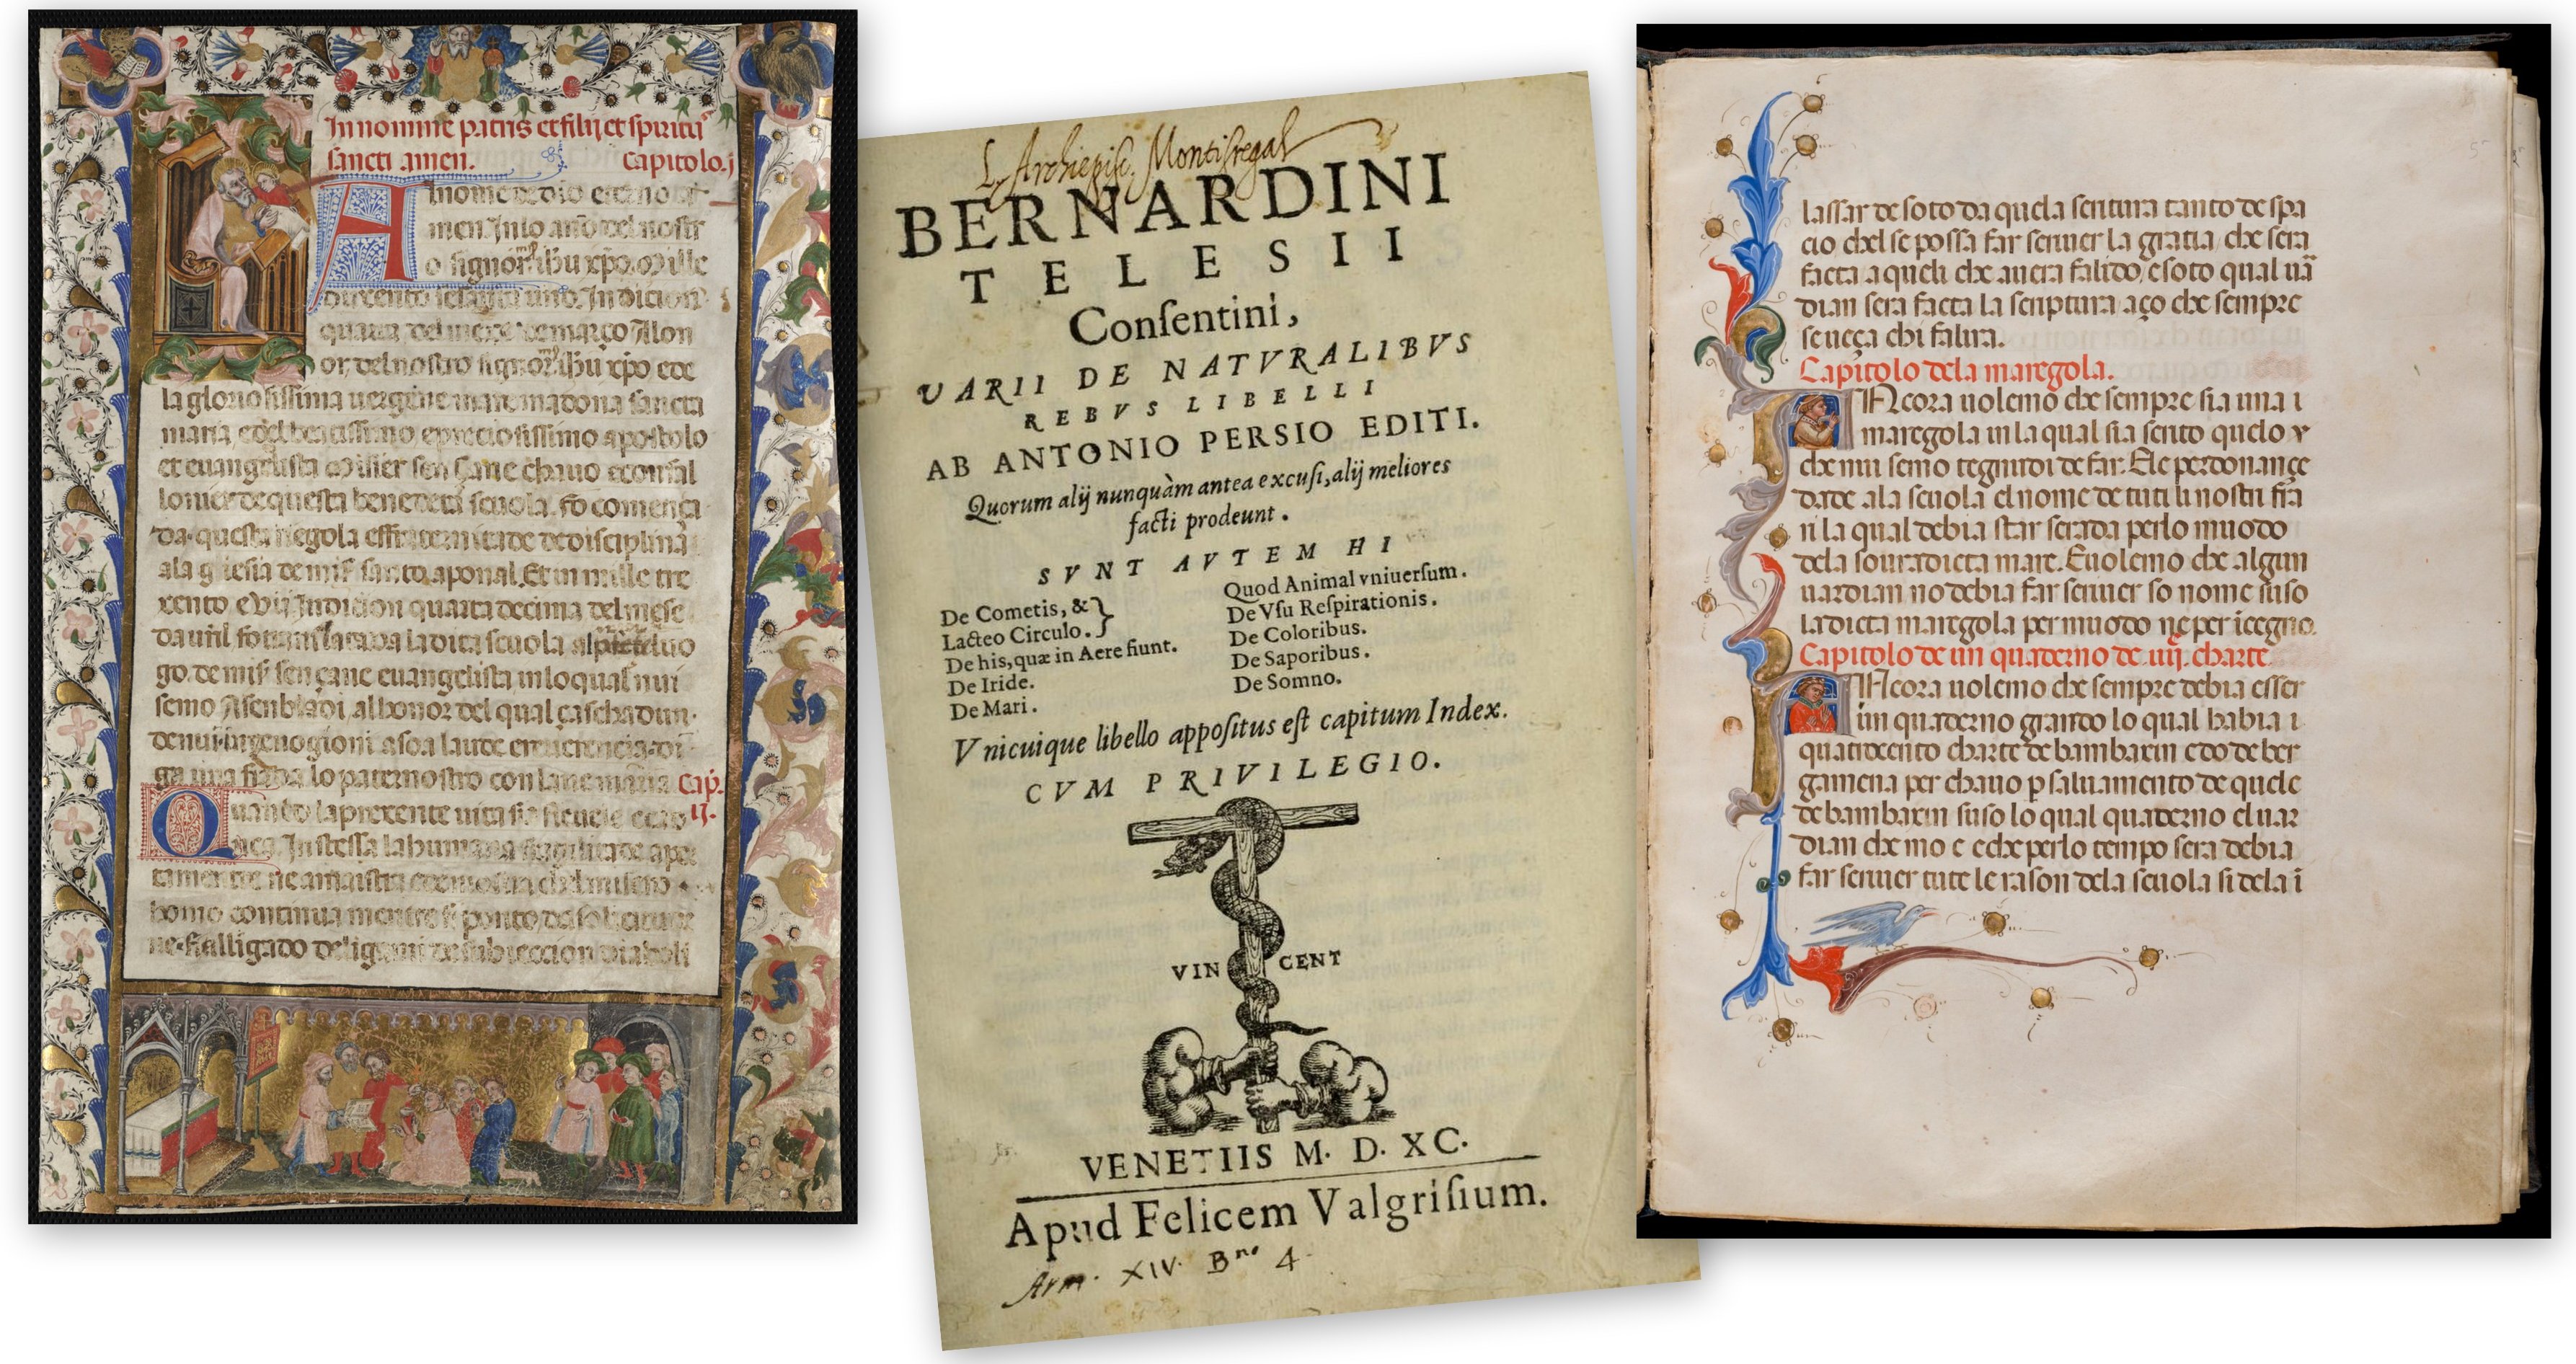 In nomine patris et filij et spiritu
sancti amen. Capitolo. j
A l nome de dio eterno
men. In lo
o signor ihu xpo. Mille
duxento
quarta del mexe de março Alon
or del nostro signor ihu xpo e de
la gloriosissima uergene mare madona sancta
maria e del beatissimo e preciosissimo apostolo
et euangelista Misier sen çane chauo e confal
lonier de questa beneeta scuola. fo començа
da questa riegola e fraternitade de disciplina
ala glesia de mis santo aponal. Et in mille tre
xento e vij Indicion quarta decima del mese
da uril fo la dita scuola al luo
go de mis sen çane euangelista in lo qual nui
semo Asenbladi al honor del qual çaschadun
de nui ingenogioni a soa laude e reuerencia di
ga una fiada lo paternostro con la ue maria Cap.
Quando la prexente uita sia fieuele e ij.
In stessa la humana fragilitade aper
tamentre ne amaistra
homo continua mentre
ne. Alligado de ligami de subieccion diaboli
L. Archiepisc. Montisregal
BERNARDINI
TELESII
Conſentini,
VARII DE NATVRALIBVS
REBVS LIBELLI
AB ANTONIO PERSIO EDITI.
Quorum alij nunquàm antea excuſi, alij meliores
facti prodeunt.
SVNT AVTEM HI
De Cometis, &
Lacteo Circulo.
De his, quæ in Aere fiunt.
De Iride.
De Mari.
Quod Animal vniuerſum.
De Vſu Reſpirationis.
De Coloribus.
De Saporibus.
De Somno.
Vnicuique libello appoſitus eſt capitum Index.
CVM PRIVILEGIO.
VIN CENT
VENETIIS M. D. XC.
Apud Felicem Valgriſium.
Arm. XIV. Bno 4
lassar de soto da quela scritura tanto de spa
cio chel se possa far scriuer la gratia che sera
facta a queli che auera falido, e soto qual uā
dian sera facta la scriptura aço che sempre
se ueça chi falira.
Capitolo dela maregola.
Ancora uolemo che sempre sia una i
maregola in la qual sia scrito quelo
che nui semo tegnudi de far. E le perdonançe
dade ala scuola el nome de tuti li nostri fra
ri la qual debia star serada per lo muodo
dela souradicta mare. E uolemo che algun
uardian no debia far scriuer so nome suso
la dicta maregola per muodo ne per içegno.
Capitolo de un quaderno de iiij. charte
Ancora uolemo che sempre debia esser
un quaderno grando lo qual habia i
quatrocento charte de bambaxin e do de ber
gamena per chauo p saluamento de quele
de bambaxin suso lo qual quaderno el uar
dian che mo e e che per lo tempo sera debia
far scriuer tute le rason dela scuola si dela ī